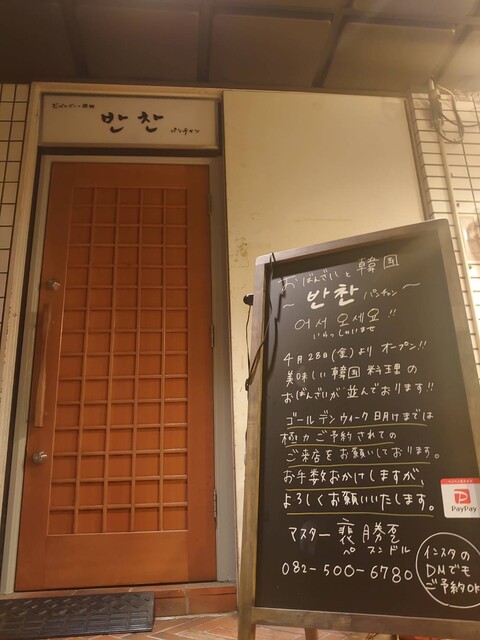 おばんざいと韓国
반찬 パンチャン
おばんざいと韓国
～ 반찬 パンチャン ～
어서 오세요!!
いらっしゃいませ
4月28日(金)より オープン!!
美味しい韓国料理の
おばんざいが並んでおります!!
ゴールデンウィーク明けまでは
極力ご予約されての
ご来店をお願いしております。
お手数おかけしますが、
よろしくお願いいたします。
マスター 裵 勝
ペ スンドル
082-500-6780
インスタの
DMでも
ご予約OK
PayPay